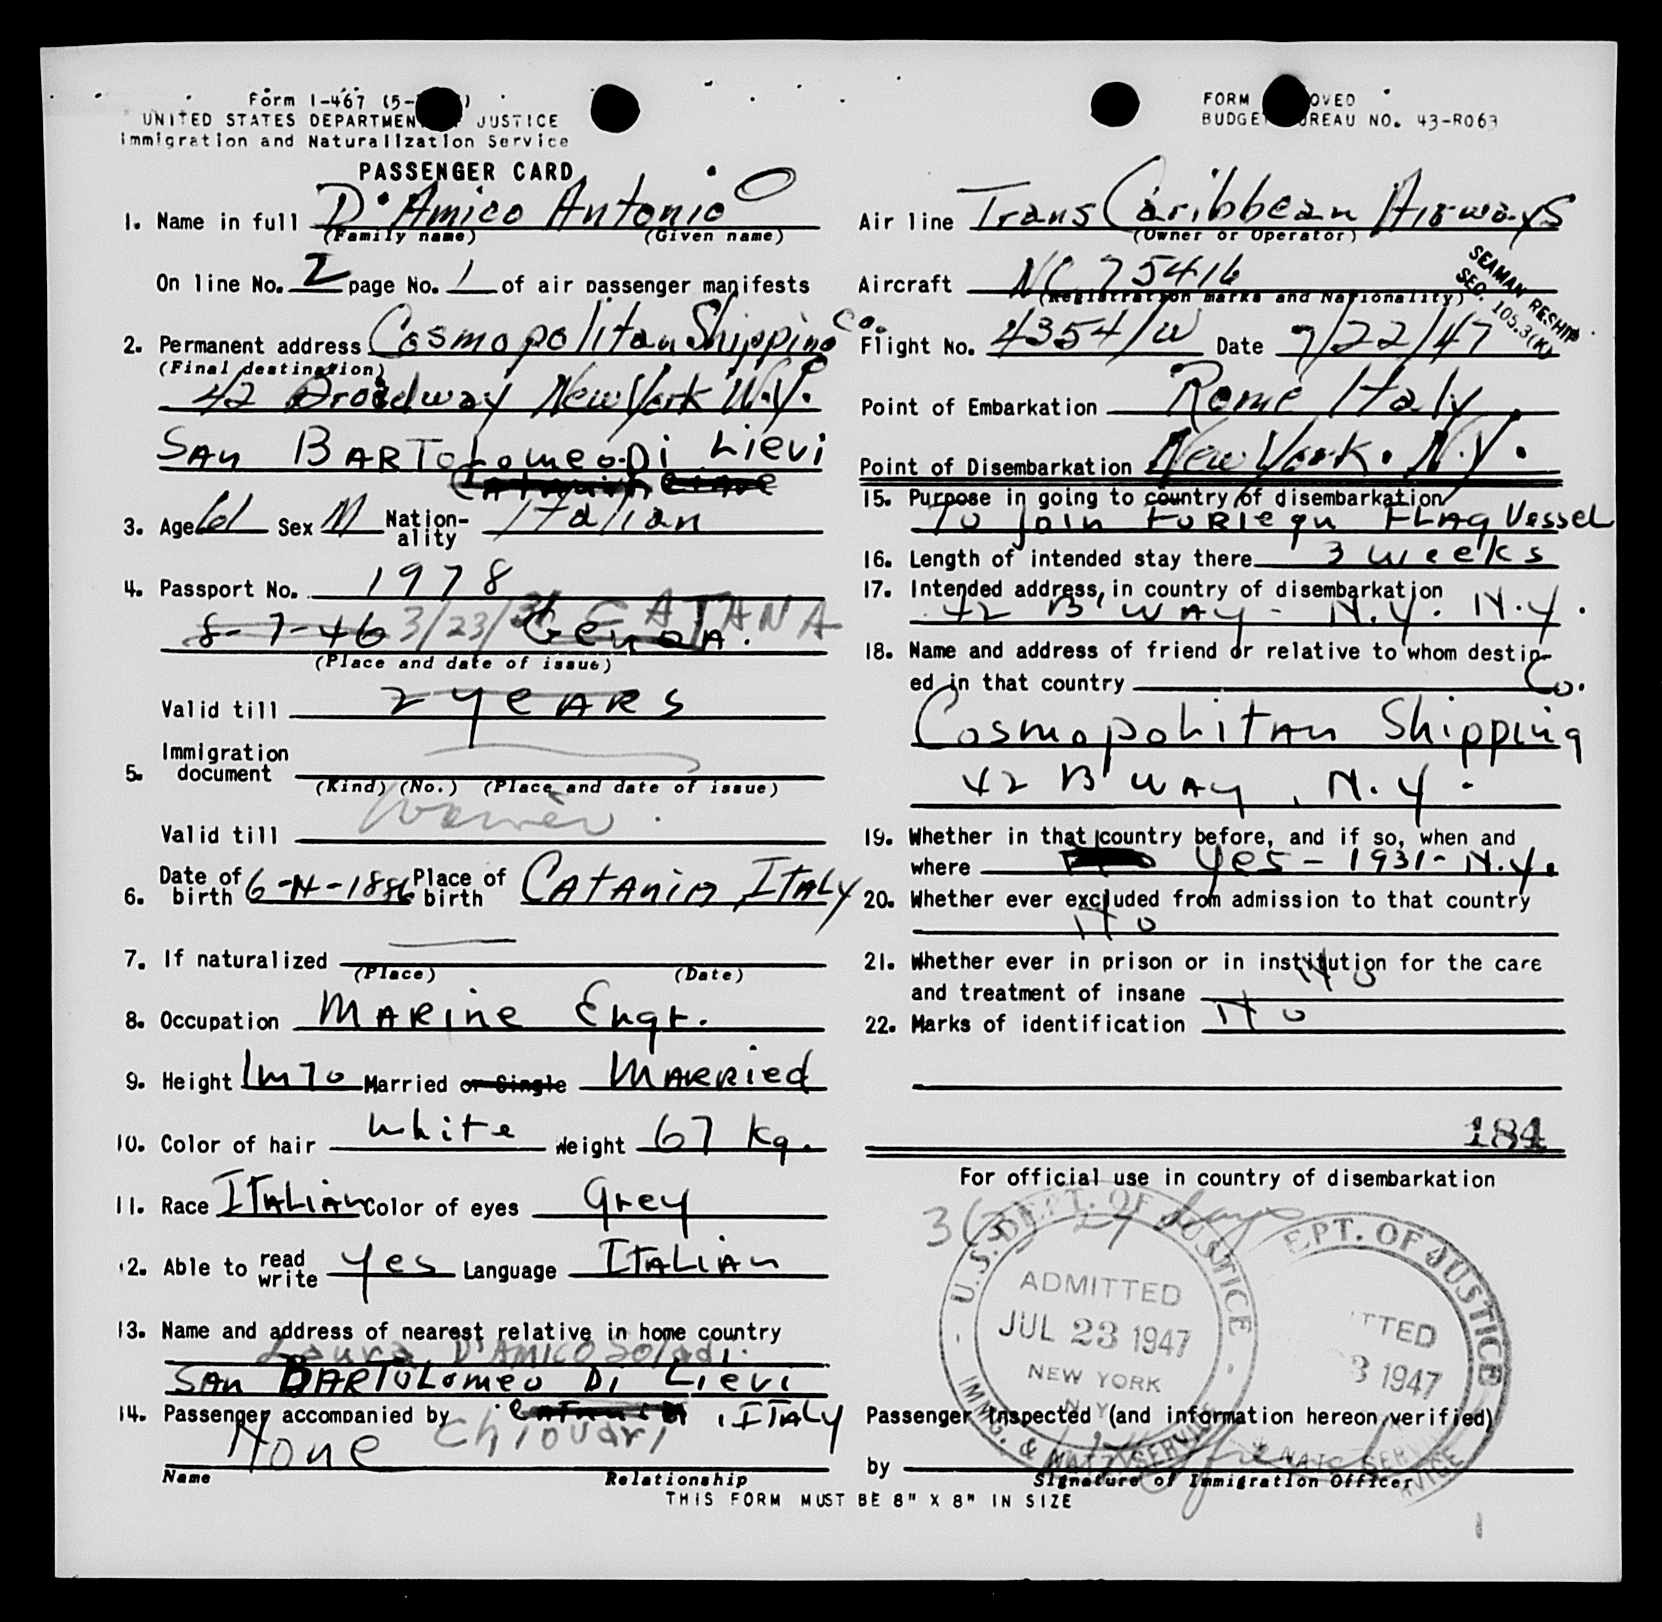 Form I-467 (5-
UNITED STATES DEPARTMEN JUSTICE
Immigration and Naturalization Service
PASSENGER CARD
FORM OVED
BUDGE REAU NO. 43-R063
1. Name in full D'Amico Antonio
(Family name) (Given name)
On line No. 2 page No. 1 of air passenger manifests
2. Permanent address Cosmopolitan Shipping Co.
(Final destination)
42 Broadway New York N.Y.
SAN BARTOLOMEO DI LIEVI
3. Age 61 Sex M Nation-ality Italian
4. Passport No. 1978
8-7-46 3/23/ Genoa. CATANA
(Place and date of issue)
Valid till 2 YEARS
5. Immigration document
(Kind) (No.) (Place and date of issue)
Waiver.
Valid till
6. Date of birth 6-N-1886 Place of birth CATANIA, ITALY
7. If naturalized
(Place) (Date)
8. Occupation MARINE Engr.
9. Height 1m70 Married or Single MARRIED
10. Color of hair White Weight 67 Kg.
11. Race ITALIAN Color of eyes Grey
12. Able to read write Yes Language ITALIAN
13. Name and address of nearest relative in home country
Laura D'AMICO
SAN BARTOLOMEO DI LIEVI
, ITALY
14. Passenger accompanied by Chiovari
None
Name Relationship
THIS FORM MUST BE 8" X 8" IN SIZE
Air line Trans Caribbean Airways
(Owner or Operator)
Aircraft NC 75416
(Registration marks and Nationality)
SEAMAN RESHIP
SEC. 105.3(K)
Flight No. 4354/W Date 7/22/47
Point of Embarkation Rome Italy
Point of Disembarkation New York. N.Y.
15. Purpose in going to country of disembarkation
To join FORIEGN FLAG Vessel
16. Length of intended stay there 3 weeks
17. Intended address, in country of disembarkation
42 B'WAY - N.Y. N.Y.
18. Name and address of friend or relative to whom destin-
ed in that country
Cosmopolitan Shipping Co.
42 B'WAY, N.Y.
19. Whether in that country before, and if so, when and
where Yes - 1931 - N.Y.
20. Whether ever excluded from admission to that country
No
21. Whether ever in prison or in institution for the care
and treatment of insane No
22. Marks of identification No
184
For official use in country of disembarkation
U.S. DEPT. OF JUSTICE
ADMITTED
JUL 23 1947
NEW YORK
N.Y.
IMMG. & NATZ. SERVICE
EPT. OF JUSTICE
TTED
3 1947
Passenger inspected (and information hereon verified)
by
Signature of Immigration Officer